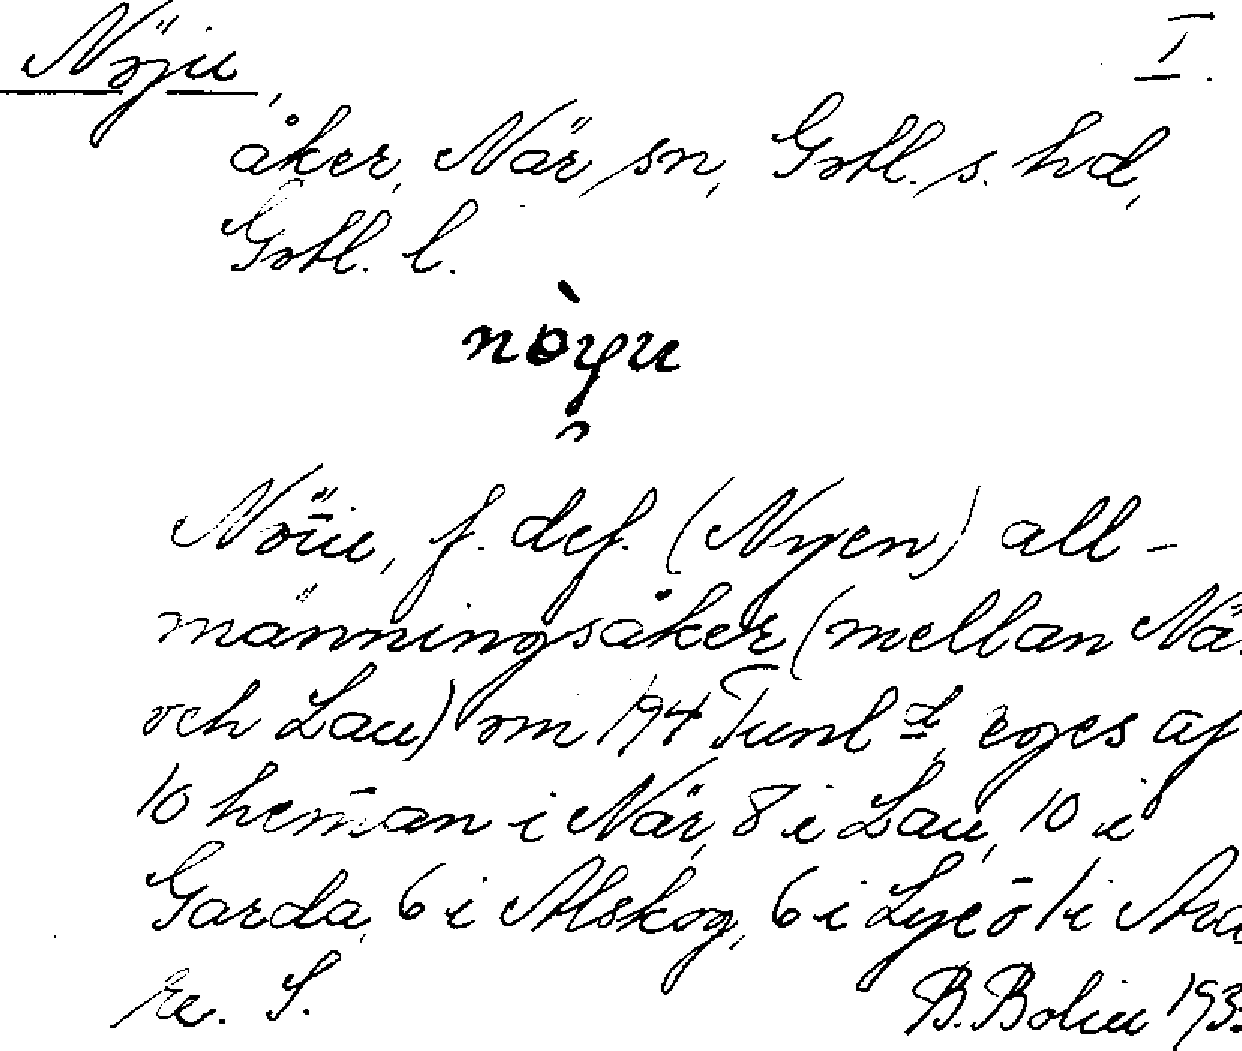 Nöju, I.
åker, När sn, Gotl. s. hd,
Gotl. l.
nòyu
Nöiu, f. def. (Nyen) all-
männingsåker (mellan Nä
och Lau) om 194 Tunl d, eges af
10 heman i När, 8 i Lau, 10 i
Garda, 6 i Alskog, 6 i Lye o 1 i
S. B. Bolin 193